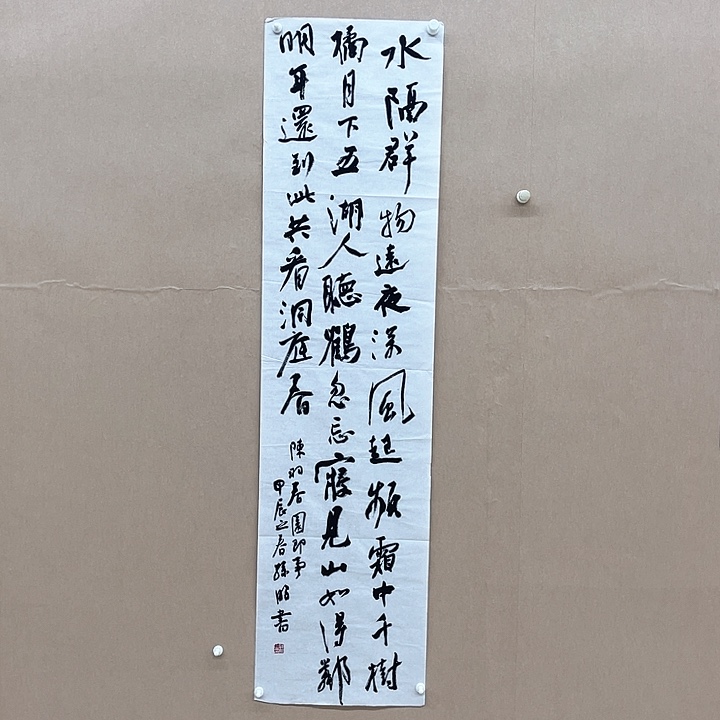 水隔群物遠夜深風起頻霜中千樹
橘月下五湖人聽鶴忽忘寢見山如得鄰
明年還到此共看洞庭春
陳羽春園即事
甲辰之春孫書